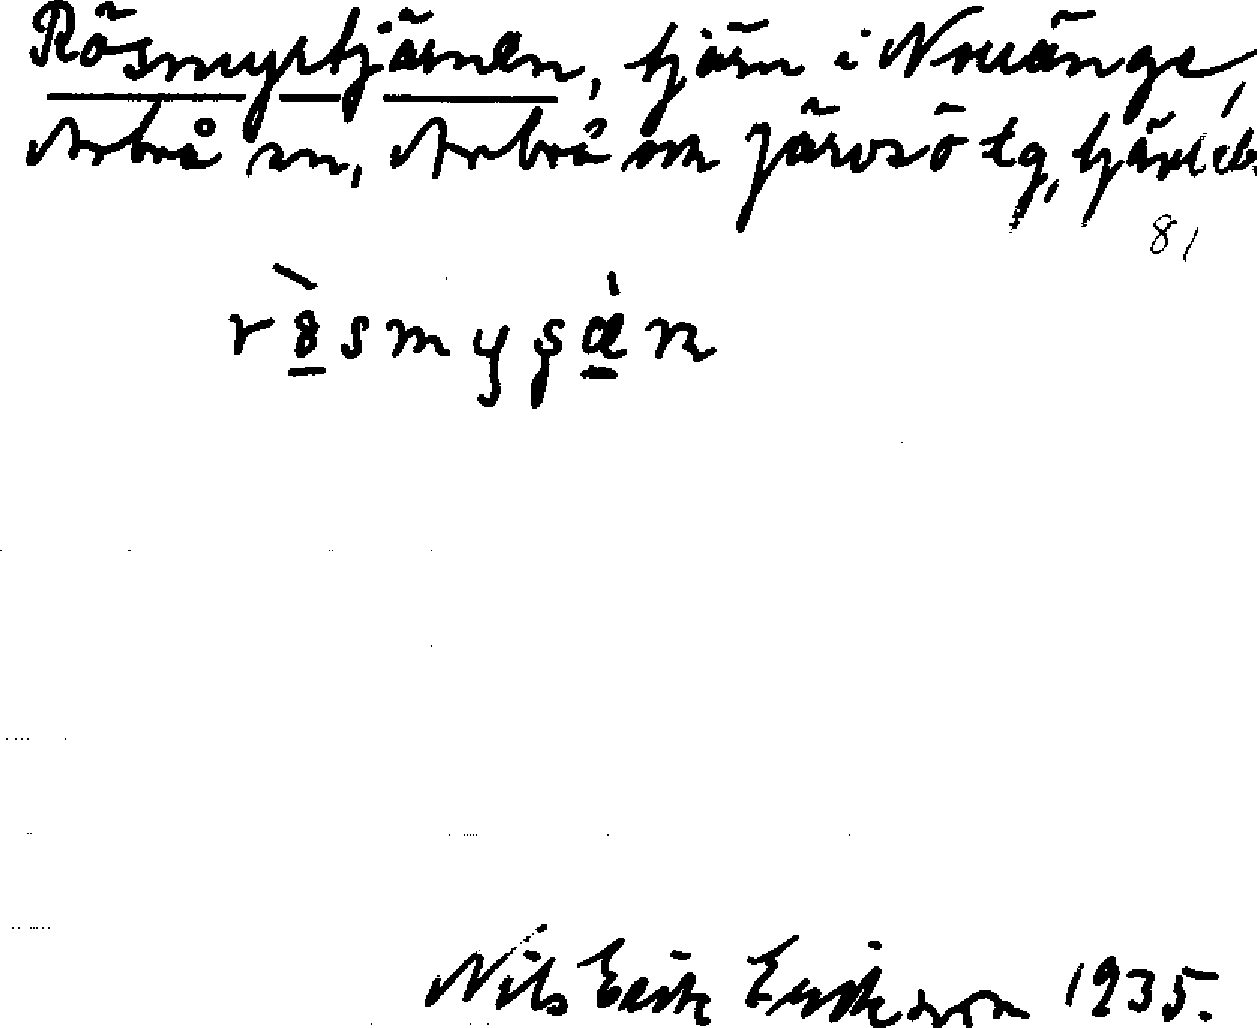 Rösmyrtjärnen, tjärn i Nouänge,
Arbrå sn, Arbrå och Järvsö tg,
81
Nils Erik Eriksson 1935.